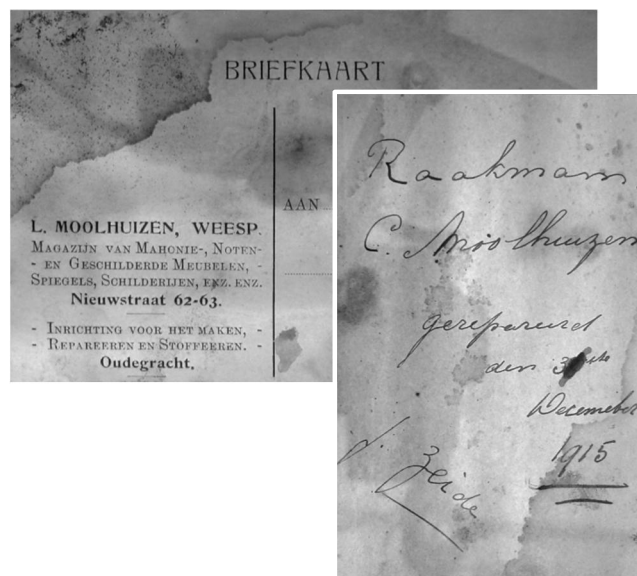 BRIEFKAART
AAN
L. MOOLHUIZEN, WEESP.
MAGAZIJN VAN MAHONIE-, NOTEN-
- EN GESCHILDERDE MEUBELEN, -
SPIEGELS, SCHILDERIJEN, ENZ. ENZ.
Nieuwstraat 62-63.
- INRICHTING VOOR HET MAKEN, -
- REPAREEREN EN STOFFEEREN. -
Oudegracht.
Raakmam
C. Moolhuizen
gerepareerd
den
Decemeber
1915
Zeide